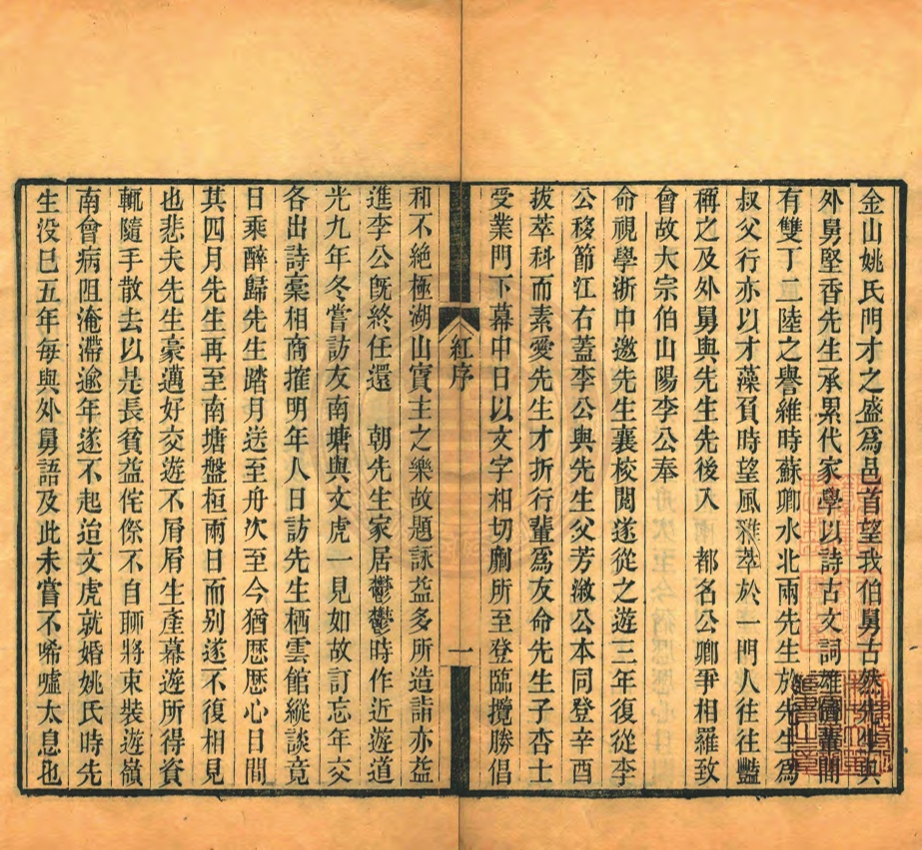 金山姚氏門才之盛爲邑首望我伯舅古然先生與
外舅堅香先生承累代家學以詩古文詞雄儕輩間
有雙丁二陸之譽維時蘇卿水北兩先生於先生爲
叔父行亦以才藻負時望風雅萃於一門人往往豔
稱之及外舅與先生先後入　都名公卿爭相羅致
會故大宗伯山陽李公奉
命視學浙中邀先生襄校閱遂從之遊三年復從李
公移節江右蓋李公與先生父芳漵公本同登辛酉
拔萃科而素愛先生才折行輩爲友命先生子杏士
受業門下幕中日以文字相切劘所至登臨攬勝倡
紅序
一
和不絕極湖山賓主之樂故題詠益多所造詣亦益
進李公旣終任還　朝先生家居鬱鬱時作近遊道
光九年冬嘗訪友南塘與文虎一見如故訂忘年交
各出詩稾相商搉明年人日訪先生栖雲館縱談竟
日乘醉歸先生踏月送至舟次至今猶歷歷心目間
其四月先生再至南塘盤桓兩日而别遂不復相見
也悲夫先生豪邁好交遊不屑屑生產幕遊所得資
輒隨手散去以是長貧益侘傺不自聊將束裝遊嶺
南會病阻淹滯逾年遂不起迨文虎就婚姚氏時先
生没已五年每與外舅語及此未嘗不唏噓太息也